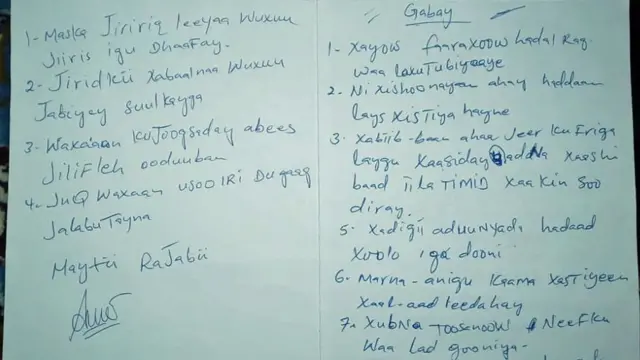 1- Maska Jiririq leeyaa Wuxuu
Jiiris igu Dhaafay.
2- Jiridkii xabaalnaa Wuxuu
Jabiyey Suulkayga
3- Waxa'aan kuJoogsaday abees
JiliFleh ooduuban
4- JuQ Waxaan usoo IRi Dugaag
JalabuTayna
Maytii RaJabii
Gabay
1- Xayow faaraxoow hadal Rag
waa laxuTubiyaaye
2. Ni xishoonayaan ahay haddaan
lays XisTiya hayne
3. Xabiib-baan ahaa Jeer ku Friga
laygu Xaasiday hadNa xaashi
baad iila TIMID Xaakin Soo
diray.
5. Xadigii aduunyada hadaad
Xoolo iga dooni
6. Marna-anigu kaama xasTiyeen
Xaal-aad leedahay
7. XubNa Toosenoow NeeFku
Waa Lad gooniya-